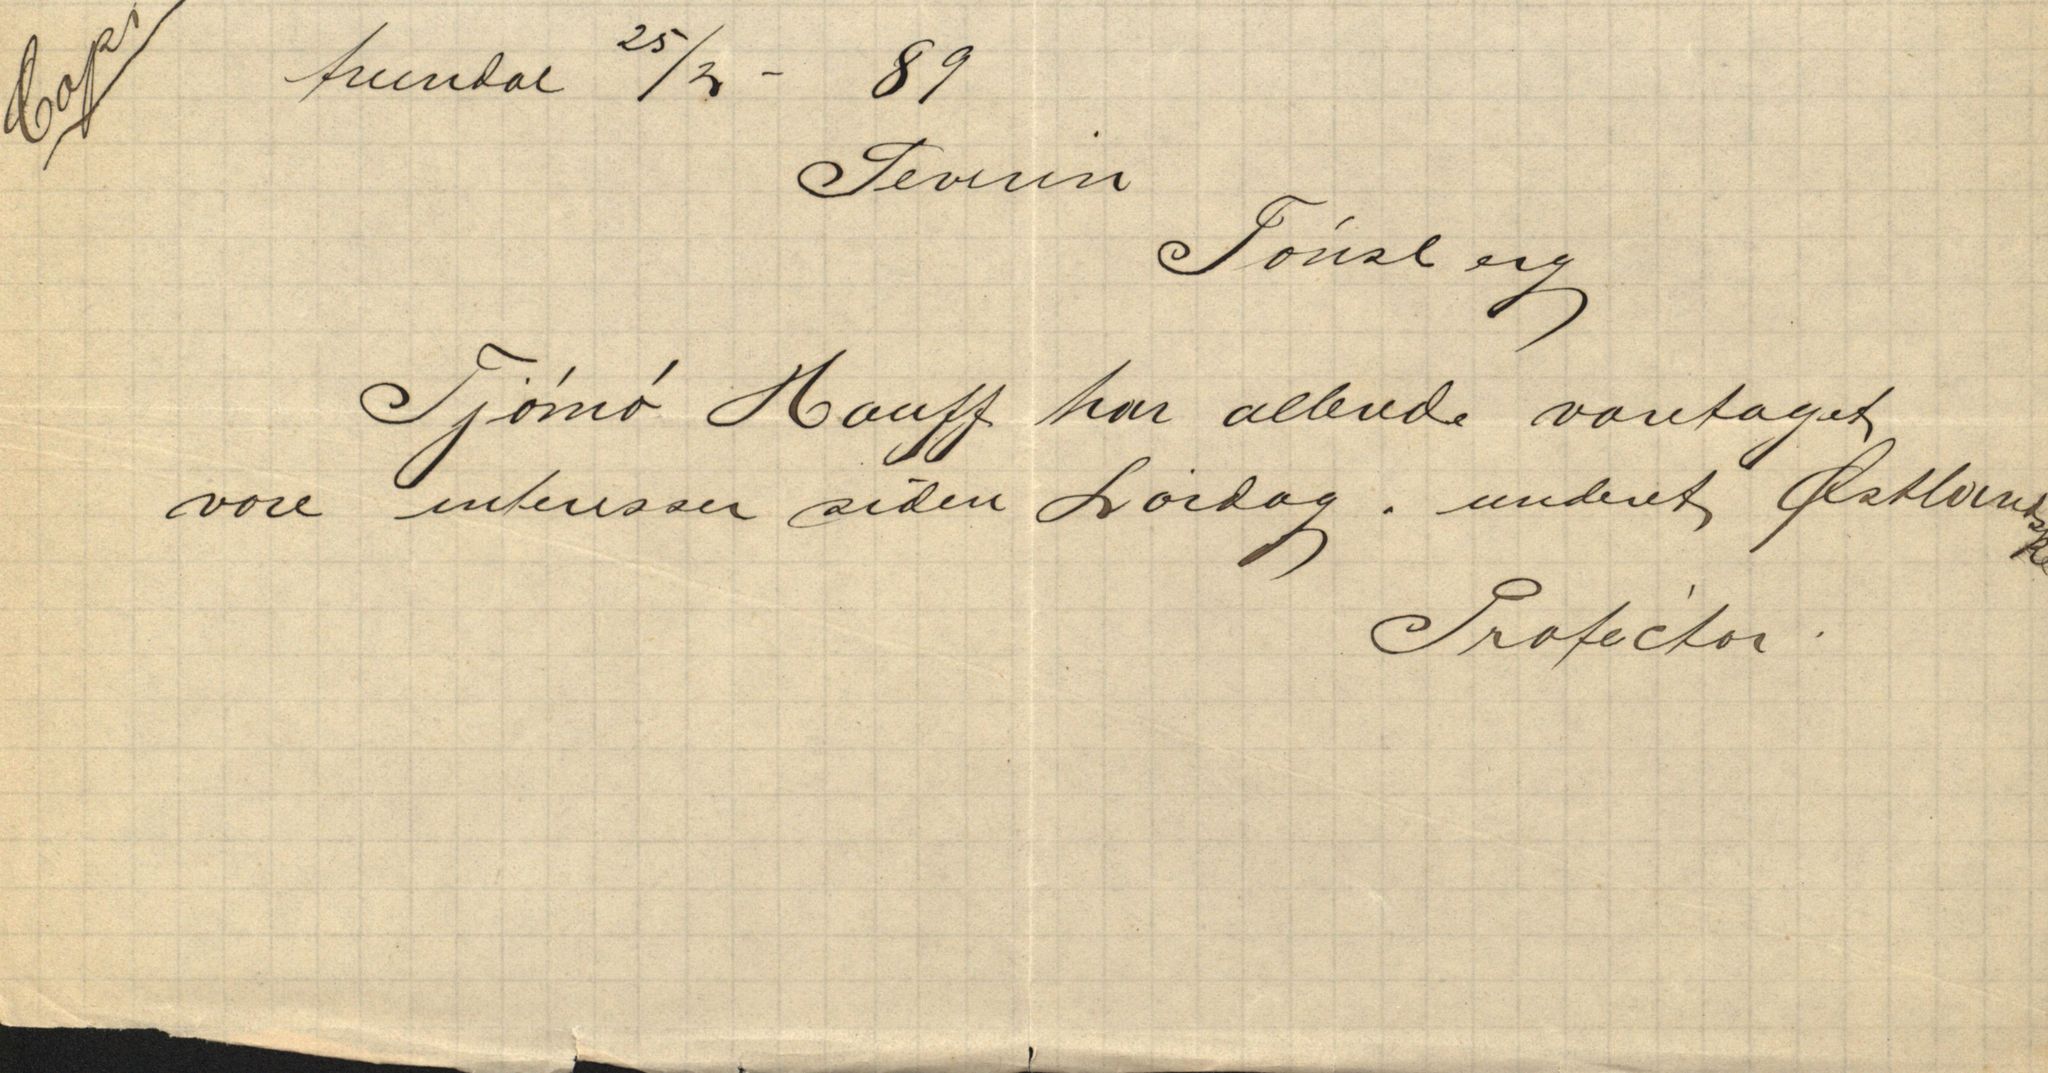 Copi
Arendal 25/2 - 89
Severin
Tónsberg
Tjómó Hauff har allerede varetaget
vore interesser siden Lórdag. underet Østlandske
Protector.